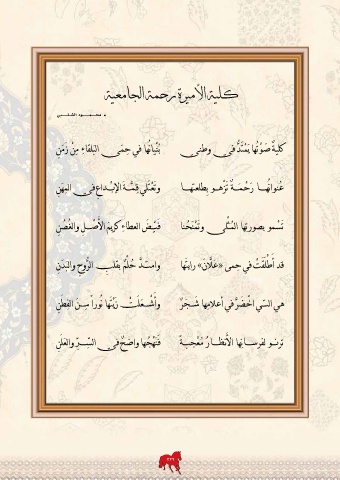 كلية الأميرة رحمة الجامعية
• محمود الشلبي
كليةٌ صَوْتُها يَمْتَدُّ في وطني بُنْيانُها في حِمَى البلقاءِ مِنْ زَمَنِ
عُنوانُهــا رَحْمَـةٌ تَزْهــو بطلعتهــا وتَعْتَلي قِمَّـةَ الإبْـداعِ في المِهَنِ
تَسْمو بصورتِها المُثْلى وتَمْنَحُنا فَيْـضَ العطـاءِ كريمَ الأَصْـلِ والغُصُنِ
قد أَطْلَقَتْ في حمى «عَلّانَ» رايتَها وامتـدَّ حُلْمٌ بقلـبِ الرّوحِ والبدنِ
هي التـي اخْضَـرَّ في أعلامِها شَـجَرٌ وأَشْـعَلَتْ زَيْتَها نُوراً مِـنَ الفِطَنِ
ترنـو لفرسـانِها الأَنظـارُ مُعْجَبـةً فَنَهْجُها واضحٌ في السّـرِّ والعَلَنِ